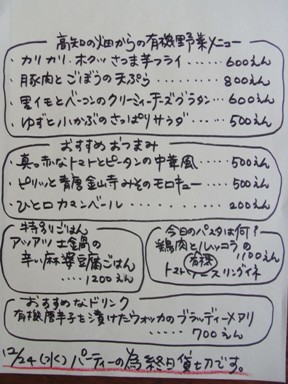 高知の畑からの有機野菜メニュー
・カリカリ、ホクッさつま芋フライ......600えん
・豚肉とごぼうの天ぷら......800えん
・里イモとベーコンのクリーミィーチーズグラタン...600えん
・ゆずと小かぶのさっぱりサラダ...500えん
おすすめおつまみ
・真っ赤なトマトとピータンの中華風......500えん
・ピリッと青唐金山寺みそのモロキュー...500えん
・ひとロカマンベール......200えん
特製りごはん
アツアツ土鍋の
辛い麻婆豆腐ごはん
......1200えん
今日のパスタは何?
鶏肉とルッコラの
1100えん
有機
トマトソースリングイネ
おすすめなドリンク
有機唐辛子を漬けたウォッカのブラッディーメアリ
......700えん
12/24(水)パーティーの為終日貸切です。